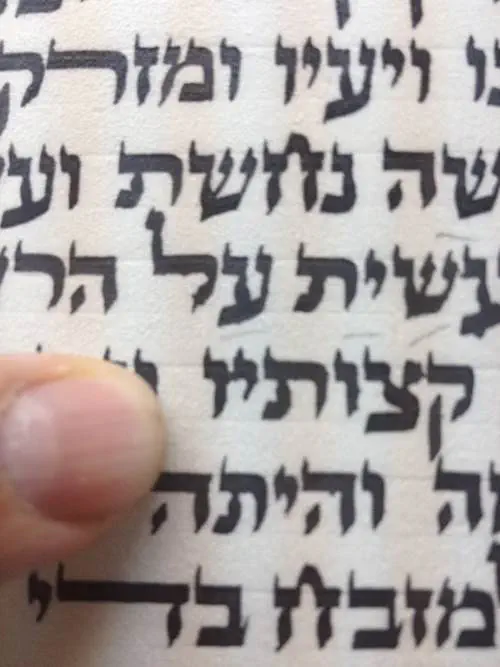 נו ויעיו ומזרק
שה נחשת ועש
עשית על הרש
קצותיו
ה והיתה
מזבח בדי